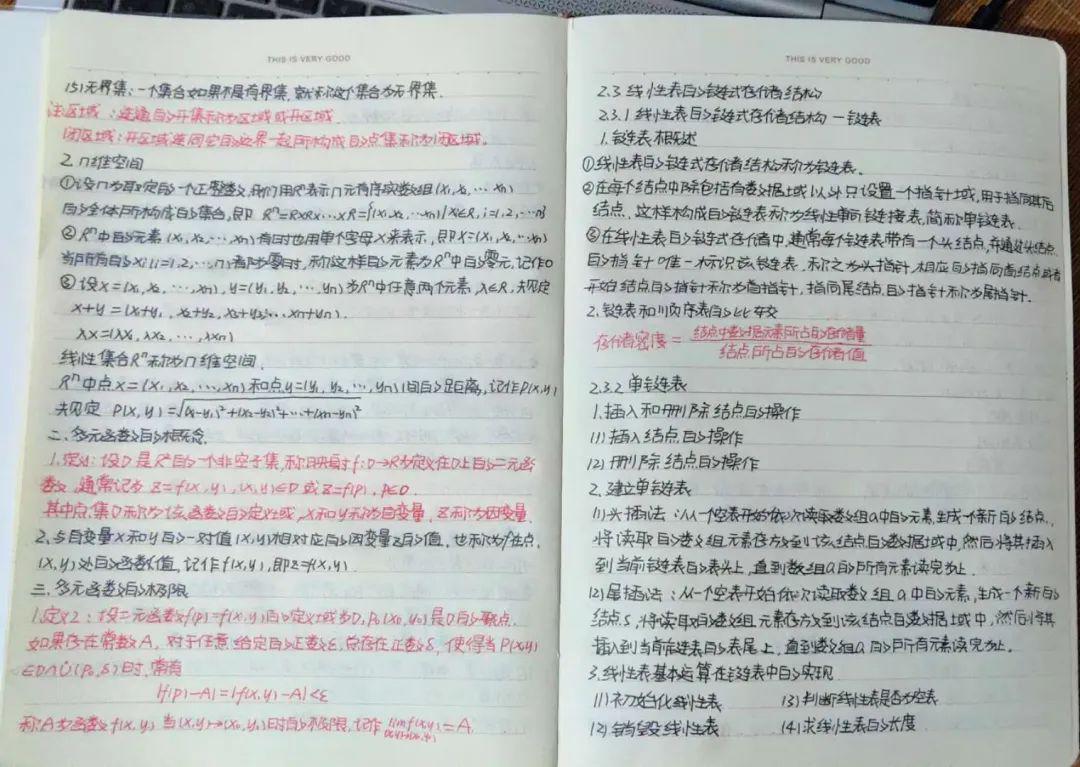 THIS IS VERY GOOD
(5)无界集:一个集合如果不是有界集,就称这个集合为无界集.
注:区域:连通的开集称为区域或开区域.
闭区域:开区域连同它的边界一起所构成的点集称为闭区域。
2.n维空间
①设n为取定的一个正整数,我们用Rⁿ表示n元有序实数组(x₁,x₂,…xn)
的全体所构成的集合,即 Rⁿ=R×R×…×R={(x₁,x₂,…xn)|xi∈R,i=1,2,…n}
②Rⁿ中的元素(x₁,x₂,…,xn)有时也用单个字母x来表示,即x=(x₁,x₂,…xn)
当所有的xi(i=1,2,…,n)都为零时,称这样的元素为Rⁿ中的零元,记作0
③设x=(x₁,x₂,…,xn),y=(y₁,y₂,…,yn)为Rⁿ中任意两个元素,λ∈R,规定
x+y=(x₁+y₁,x₂+y₂,x₃+y₃,…xn+yn).
λx=(λx₁,λx₂,…,λxn)
线性集合Rⁿ称为n维空间.
Rⁿ中点x=(x₁,x₂,…,xn)和点y=(y₁,y₂,…,yn)间的距离,记作P(x,y)
规定 P(x,y)=√(x₁-y₁)²+(x₂-y₂)²+…+(xn-yn)²
二、多元函数的概念.
1.定义1:设D是R²的一个非空子集,称映射f:D→R为定义在D上的二元函
数,通常记为 z=f(x,y),(x,y)∈D 或z=f(p),p∈D.
其中点集D称为该函数的定义域,x和y称为自变量,z称为因变量.
2.与自变量x和y的一对值(x,y)相对应的因变量z的值,也称为f在点
(x,y)处的函数值,记作f(x,y),即z=f(x,y)
三、多元函数的极限
1.定义2:设二元函数f(p)=f(x,y)的定义域为D,P₀(x₀,y₀)是D的聚点.
如果存在常数A,对于任意给定的正数ε,总存在正数δ,使得当P(x,y)
∈D∩Ů(P₀,δ)时,常有
|f(p)-A|=|f(x,y)-A|<ε
称A为函数f(x,y)当(x,y)→(x₀,y₀)时的极限,记作 lim f(x,y)=A
(x,y)→(x₀,y₀)
THIS IS VERY GOOD
2.3 线性表的链式存储结构
2.3.1 线性表的链式存储结构—链表
1.链表概述
①线性表的链式存储结构称为链表.
②在每个结点中除包括有数据域以外只设置一个指针域,用于指向其后
结点,这样构成的链表称为线性单向链接表,简称单链表.
③在线性表的链式存储中,通常每个链表带有一个头结点,并通过头结点
的指针唯一标识该链表,称之为头指针,相应的指向首结点或者
开始结点的指针称为首指针,指向尾结点的指针称为尾指针.
2.链表和顺序表的比较
存储密度= 结点中数据元素所占的存储量
结点所占的存储值
2.3.2 单链表
1.插入和删除结点的操作
(1)插入结点的操作
(2)删除结点的操作
2.建立单链表
(1)头插法:从一个空表开始依次读取数组a中的元素,生成一个新的结点,
将读取的数组元素存放到该结点的数据域中,然后将其插入
到当前链表的表头上,直到数组a的所有元素读完为止.
(2)尾插法:从一个空表开始依次读取数组a中的元素,生成一个新的
结点s,将读取的数组元素存放到该结点的数据域中,然后将其
插入到当前链表的表尾上,直到数组a的所有元素读完为止.
3.线性表基本运算在链表中的实现
(1)初始化线性表 (3)判断线性表是否为空表
(2)销毁线性表 (4)求线性表的长度